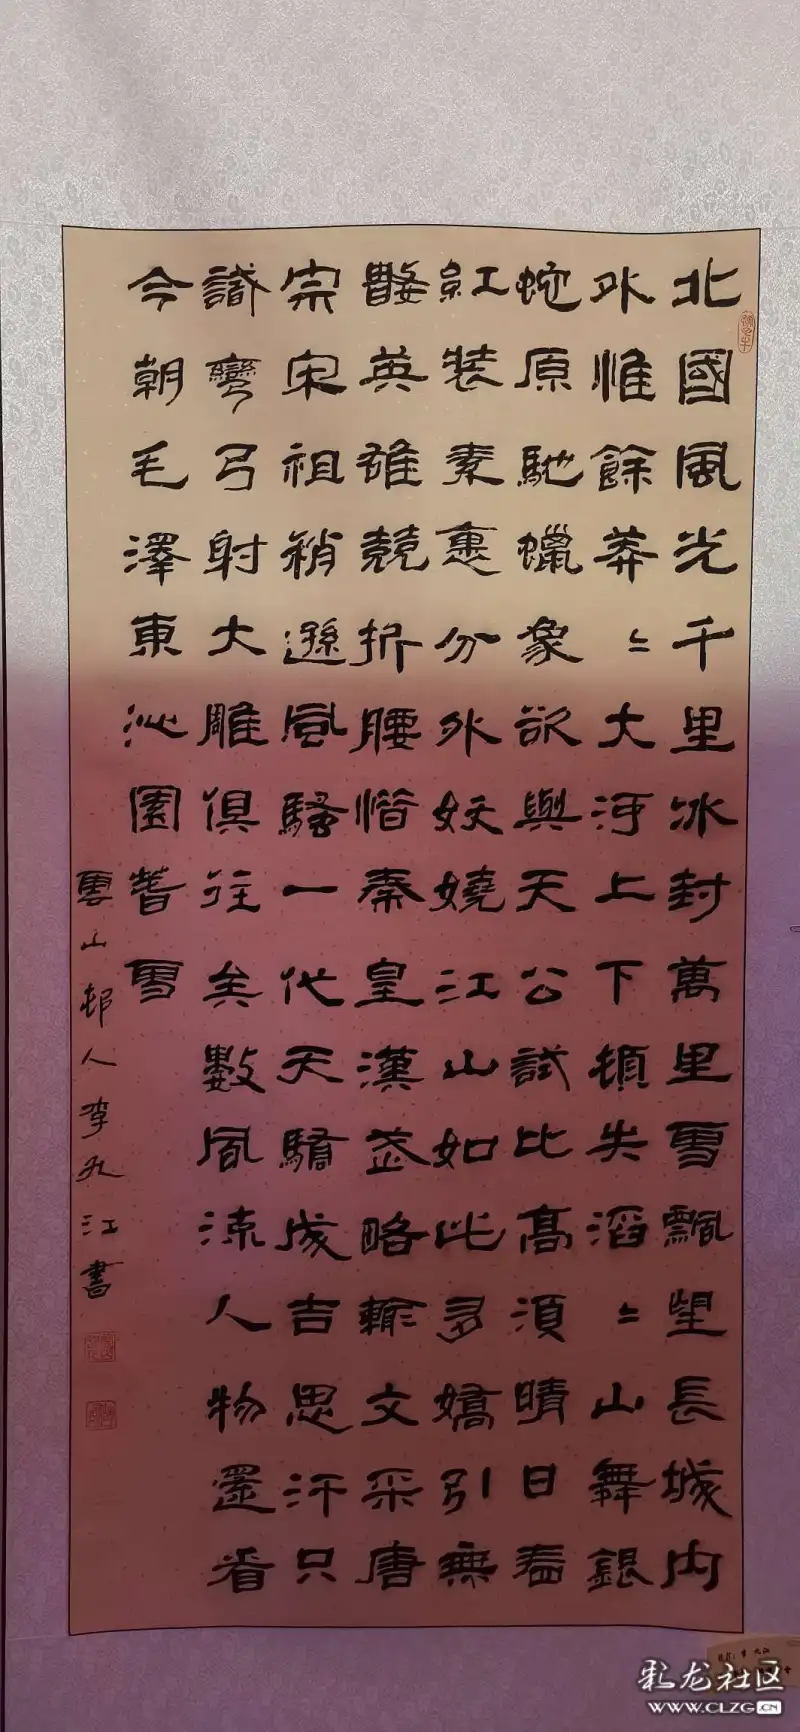 北國風光千里冰封萬里雪飄望長城内
外惟餘莽〻大河上下頓失滔〻山舞銀
蛇原馳蠟象欲與天公試比高須晴日看
紅裝素裹分外妖嬈江山如此多嬌引無
數英雄競折腰惜秦皇漢武略輸文采唐
宗宋祖稍遜風騷一代天驕成吉思汗只
識彎弓射大雕俱往矣數風流人物還看
今朝毛澤東沁園春雪
雲山邨人李九江書
彩龙社区
WWW.CLZG.CN